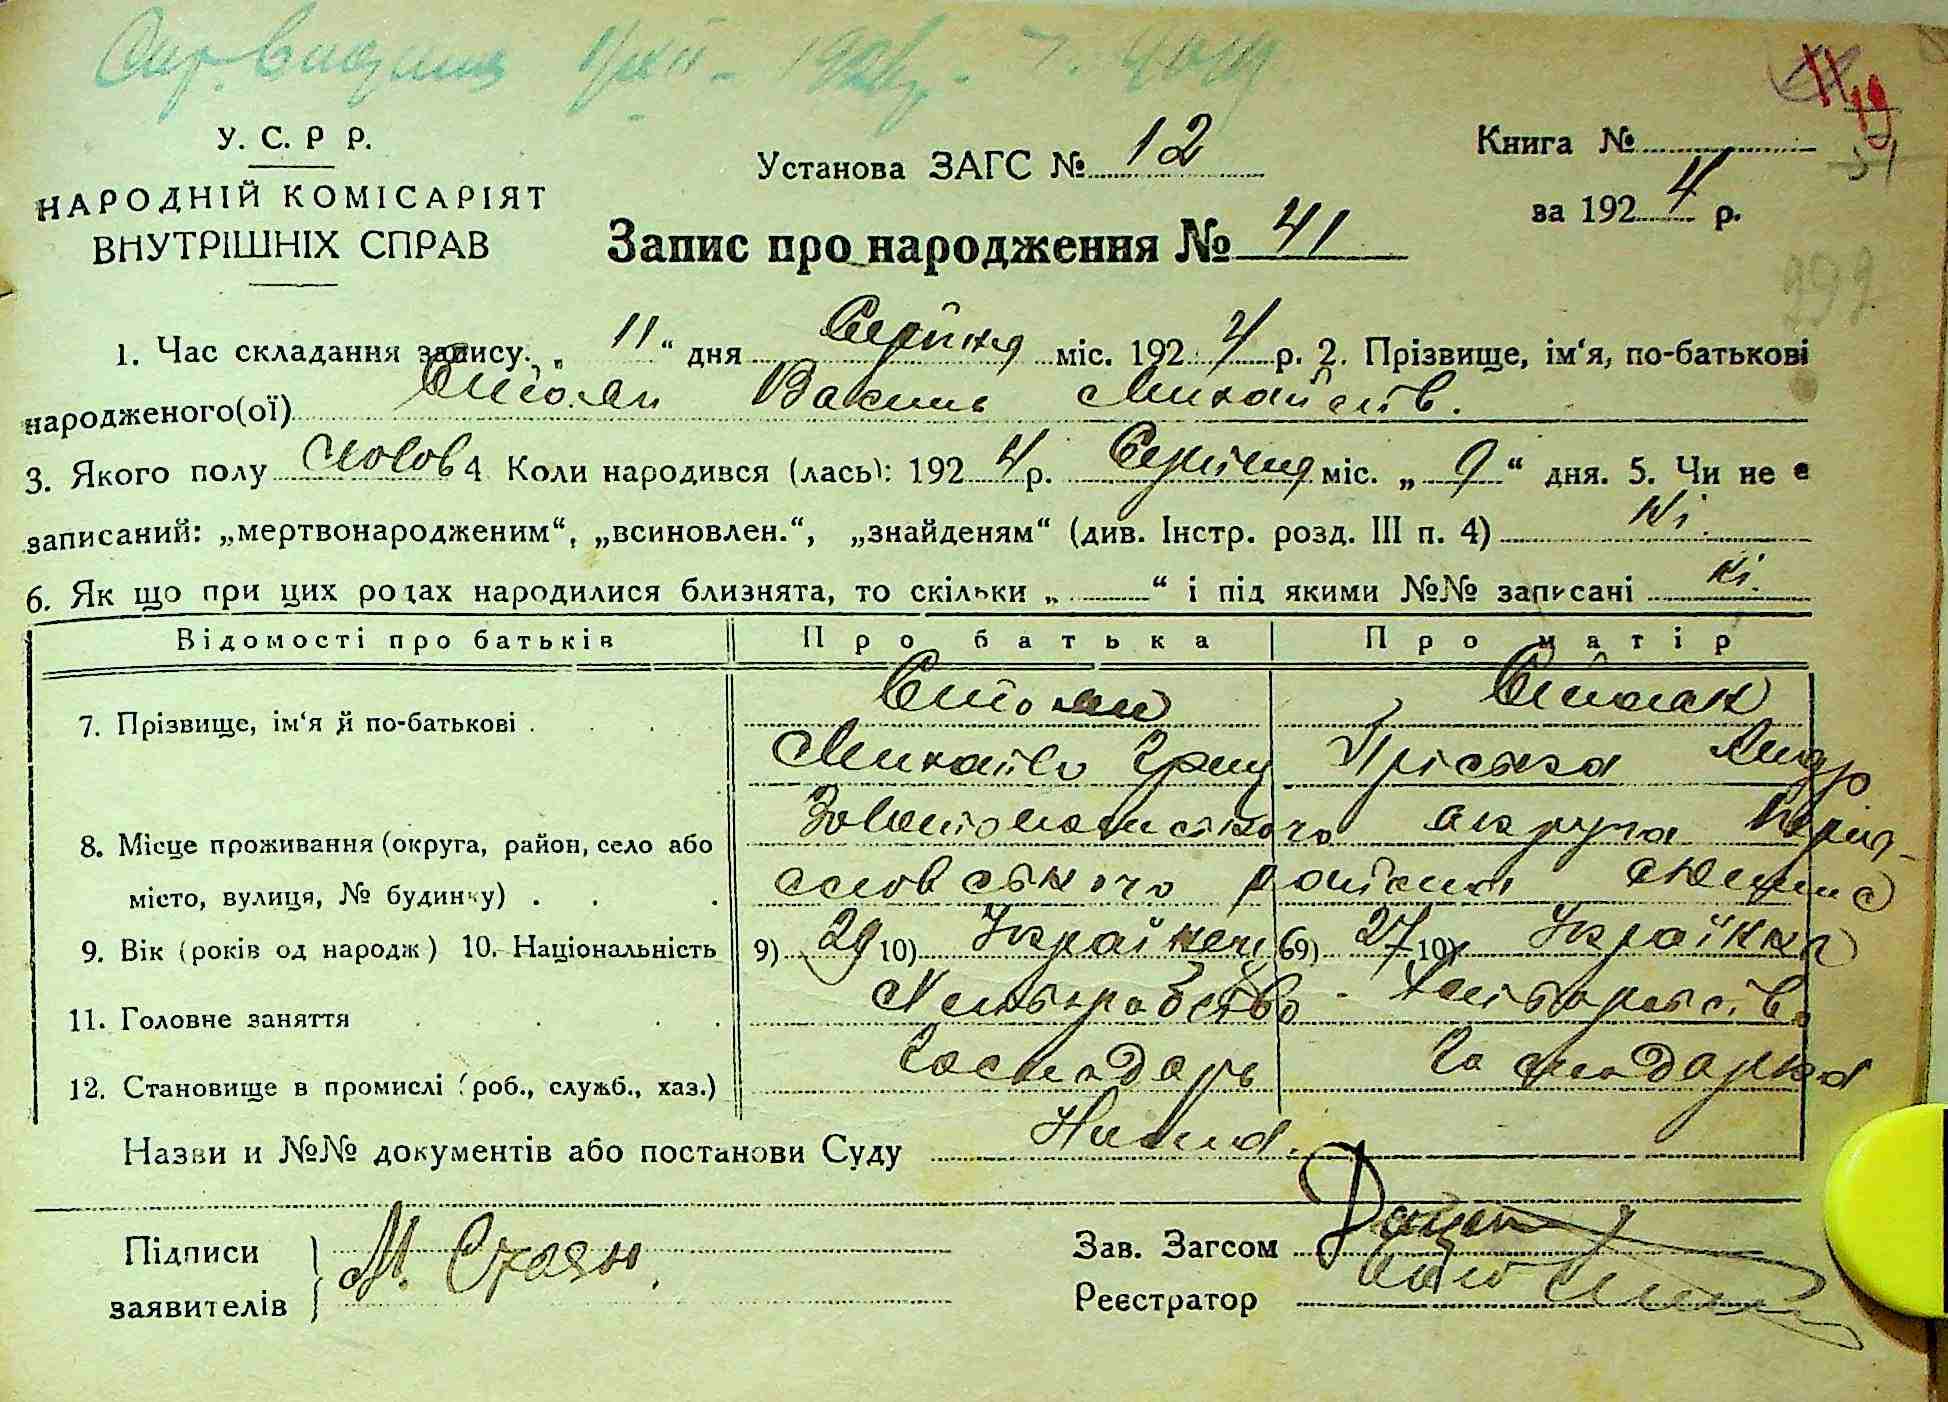 У. С. Р Р.
НАРОДНІЙ КОМІСАРІЯТ
ВНУТРІШНІХ СПРАВ
Установа ЗАГС № 12
Книга №
за 1924 р.
Запис про народження № 41
1. Час складання запису. „ 11 “ дня Серпня міс. 1924 р. 2. Прізвище, ім‘я, по-батькові
народженого(ої) Стоян Василь Михайлів.
3. Якого полу чолов 4 Коли народився (лась): 1924 р. Серпня міс. „ 9 “ дня. 5. Чи не є
записаний: „мертвонародженим“, „всиновлен.“, „знайденям“ (див. Інстр. розд. III п. 4) ні.
6. Як що при цих родах народилися близнята, то скільки „ “ і під якими №№ записані ні.
Відомості про батьків Про батька Про матір
7. Прізвище, ім‘я й по-батькові Стоян Стоян
Михайло Григ Пріська Андр
8. Місце проживання (округа, район, село або Золотоноського округа
місто, вулиця, № будинку) района
9. Вік (років од народж) 10. Національність 9) 29 10) Українець 9) 27 10) Українка
11. Головне заняття Хліборобство Хліборобств
12. Становище в промислі (роб., служб., хаз.) Господарь Господарка
Назви и №№ документів або постанови Суду Нима.
Підписи
заявителів М. Стоян
Зав. Загсом
Реєстратор